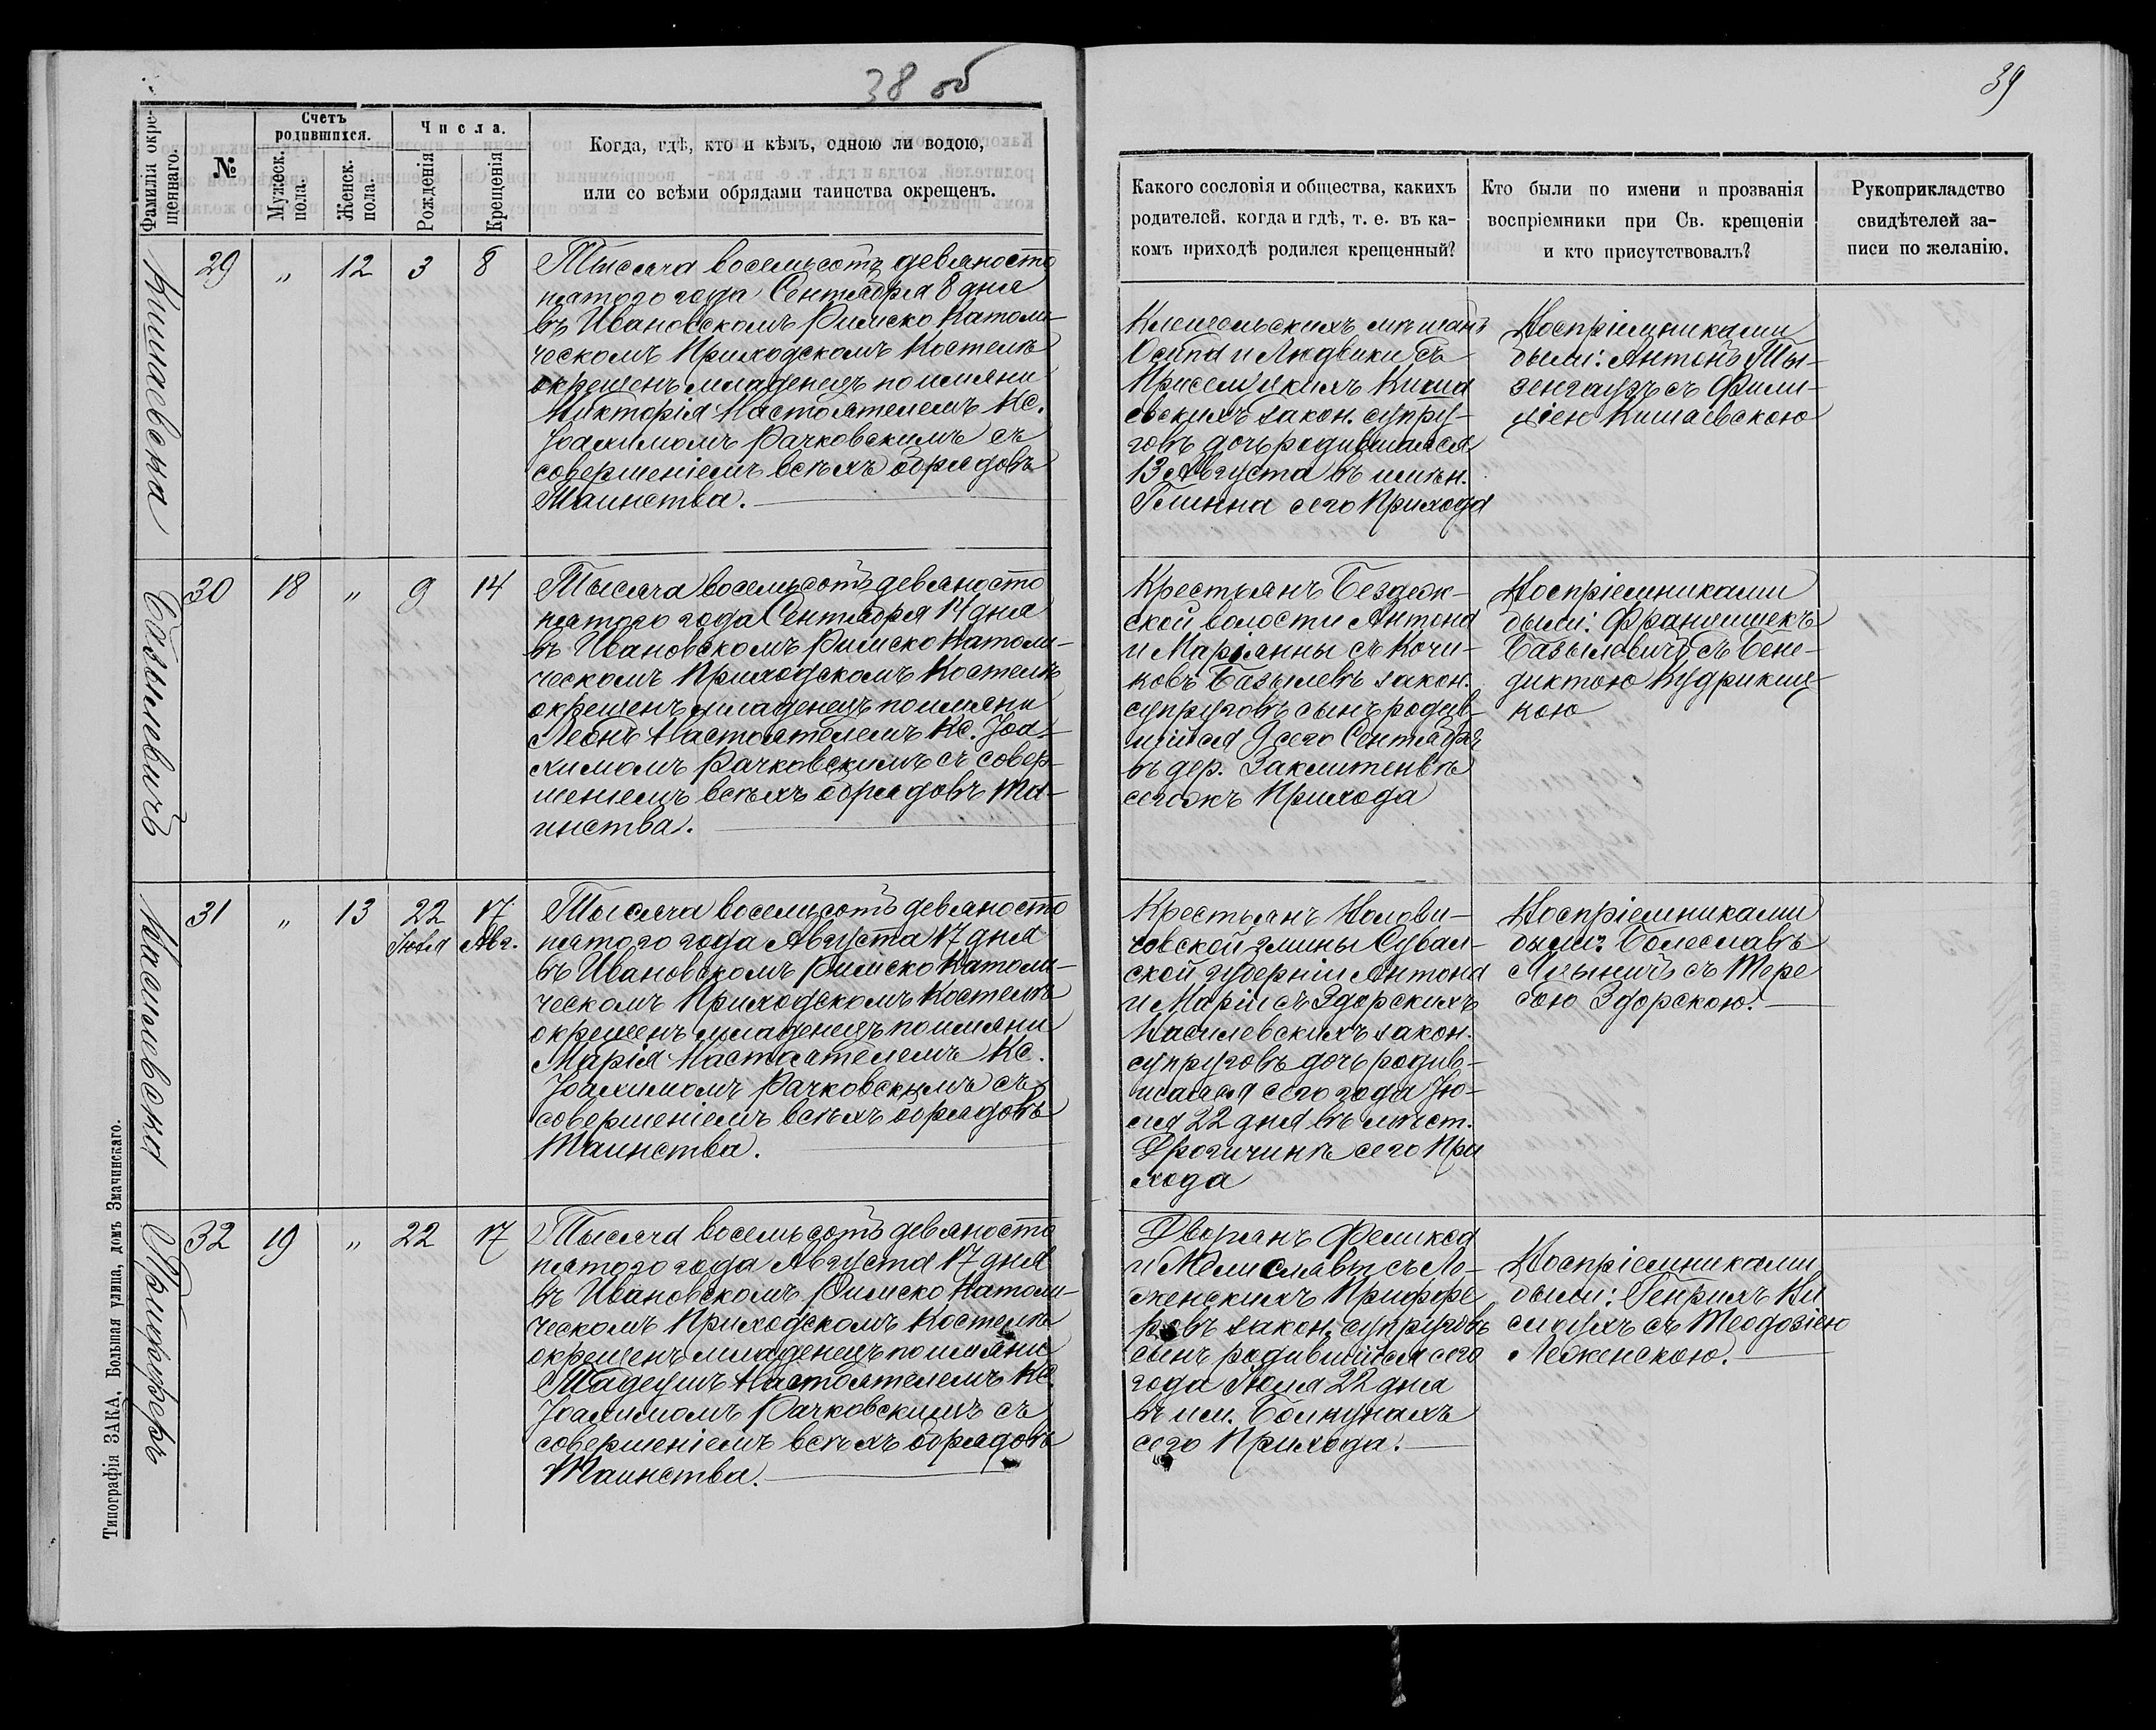 38 об
Фамилія окре-
щеннаго.
№
Счетъ
родившихся.
Мужеск.
пола.
Женск.
пола.
Числа.
Рожденія
Крещенія
Когда, гдѣ, кто и кѣмъ, одною ли водою,
или со всѣми обрядами таинства окрещенъ.
Кишаевска
29 " 12 3 8
Тысяча восемьсотъ девяносто
пятого года Сентября 8 дня
въ Ивановскомъ Римско Католи-
ческомъ Приходскомъ Костелѣ
окрещенъ младенецъ по имяни
Викторія Настоятелемъ Кс.
Іоахимомъ Рачковскимъ съ
совершеніемъ всѣхъ обрядовъ
Таинства.
Базылевичъ
30 18 " 9 14
Тысяча восемьсотъ девяносто
пятого года Сентября 14 дня
въ Ивановскомъ Римско Католи-
ческомъ Приходскомъ Костелѣ
окрещенъ младенецъ по имяни
Леонъ Настоятелемъ Кс. Іоа-
химомъ Рачковскимъ съ совер-
шеніемъ всѣхъ обрядовъ Та-
инства.
Василевска
31 " 13 22 17
Іюля Авг.
Тысяча восемьсотъ девяносто
пятого года Августа 17 дня
въ Ивановскомъ Римско Католи-
ческомъ Приходскомъ Костелѣ
окрещенъ младенецъ по имяни
Марія Настоятелемъ Кс.
Іоахимомъ Рачковскимъ съ
совершеніемъ всѣхъ обрядовъ
Таинства.
Приффер
32 19 " 22 17
Тысяча восемьсотъ девяносто
пятого года Августа 17 дня
въ Ивановскомъ Римско Католи-
ческомъ Приходскомъ Костелѣ
окрещенъ младенецъ по имяни
Тадеушъ Настоятелемъ Кс.
Іоахимомъ Рачковскимъ съ
совершеніемъ всѣхъ обрядовъ
Таинства.
Типографія ЗАКА, Большая улица, домъ Значинскаго.
39
Какого сословія и общества, какихъ
родителей, когда и гдѣ, т. е. въ ка-
комъ приходѣ родился крещенный?
Кто были по имени и прозванія
воспріемники при Св. крещеніи
и кто присутствовалъ?
Рукоприкладство
свидѣтелей за-
писи по желанію.
Клещельскихъ мѣщанъ
Осипа и Людвики съ
Кишa
евскихъ закон. супру-
говъ дочь родившаяся
13 Августа въ имѣн.
Глинна сего Прихода
Воспріемниками
были: Антонъ Ты-
зенгаузъ съ Фили-
Кишаевскою
Крестьянъ Бездеж-
ской волости Антона
и Маріянны съ Кочи-
ковъ Базылевъ закон.
супруговъ сынъ родив-
шійся 9 сего Сентября
въ дер. Заклитенвѣ
сегожъ Прихода
Воспріемниками
были: Францишекъ
Базылевичъ съ Бене-
диктою Кудрициц-
кою
Крестьянъ Волови-
човской гмины Сувал-
ской губерніи Антона
и Маріи съ Здорскихъ
Василевскихъ закон.
супруговъ дочь родив-
шаяся сего года Ію-
ля 22 дня въ мѣст.
Дрогичинѣ сего При
хода
Воспріемниками
были: Болеславъ
съ Тере
сою Здорскою.
Дворянъ Феликса
и Мечиславы съ Ло-
женскихъ Приффе
ровъ закон. супруговъ
сынъ родившійся сего
года Іюля 22 дня
въ им. Болкунахъ
сего Прихода.
Воспріемниками
были: Генрихъ
съ Теодозіею
Леженскою.